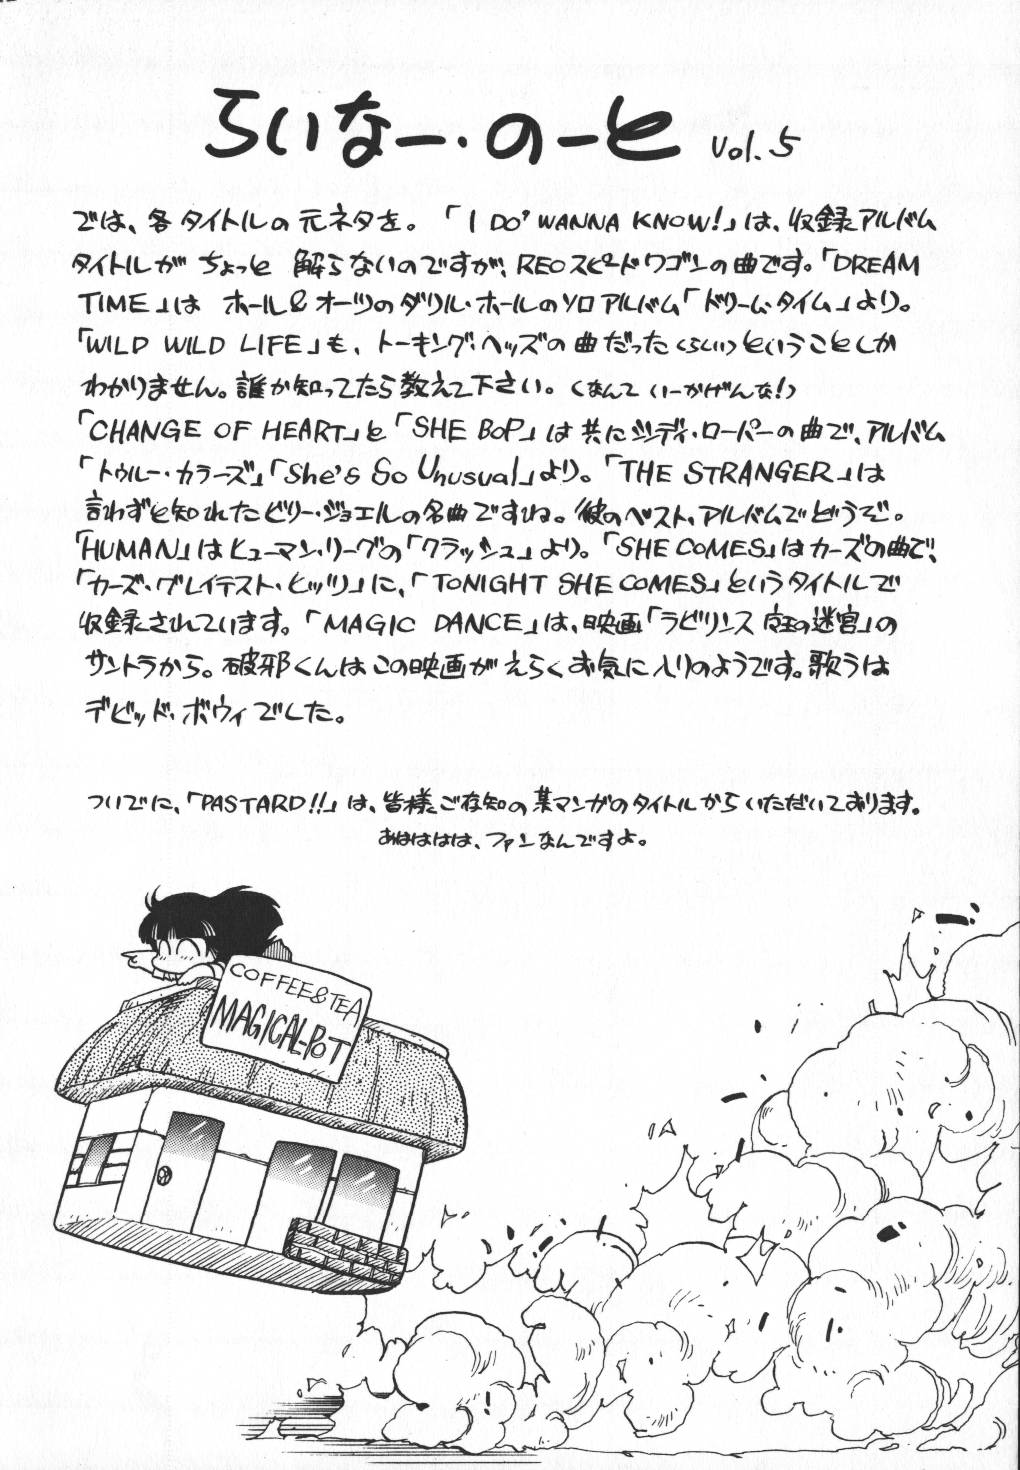 らいなー・のーと Vol.5
では、各タイトルの元ネタを。「I DO' WANNA KNOW!」は、収録アルバム
タイトルがちょっと 解らないのですが、REOスピードワゴンの曲です。「DREAM
TIME」は ホール&オーツのダリル・ホールのソロアルバム「ドリーム・タイム」より。
「WILD WILD LIFE」も、トーキング・ヘッズの曲だった(らしい)ということしか
わかりません。誰か知ってたら教えて下さい。(なんて いーかげんな!)
「CHANGE OF HEART」と「SHE BOP」は共にシンディ・ローパーの曲で、アルバム
「トゥルー・カラーズ」「She's So Unusual」より。「THE STRANGER」は
言わずと知れたビリー・ジョエルの名曲ですね。彼のベスト・アルバムでどうぞ。
「HUMAN」はヒューマン・リーグの「クラッシュ」より。「SHE COMES」はカーズの曲で、
「カーズ・グレイテスト・ヒッツ」に、「TONIGHT SHE COMES」というタイトルで
収録されています。「MAGIC DANCE」は、映画「ラビリンス 魔王の迷宮」の
サントラから。破邪くんはこの映画がえらくお気に入りのようです。歌うは
デビッド・ボウィでした。
ついでに、「PASTARD!!」は、皆様ご存知の某マンガのタイトルからいただいております。
あはははは、ファンなんですよ。
COFFEE&TEA
MAGICAL-POT